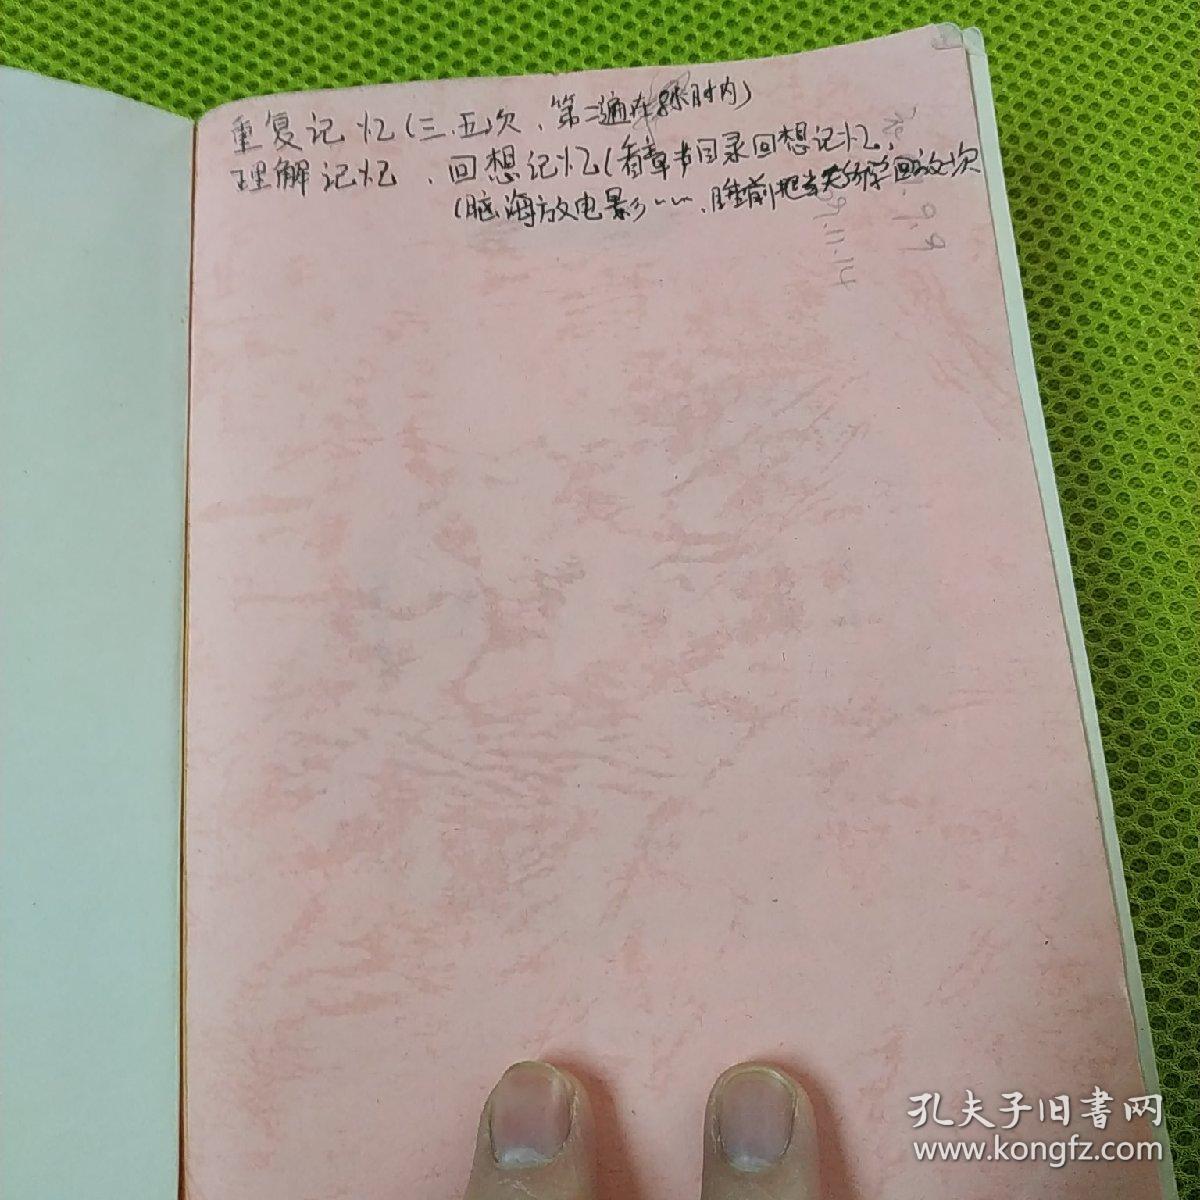 重复记忆(三、五次、第二遍在 时内)
理解记忆、回想记忆(看章节目录回想记忆,
(脑海放电影……、睡前把当天所学回放次
9.9
9.11.14
孔夫子旧書网
www.kongfz.com